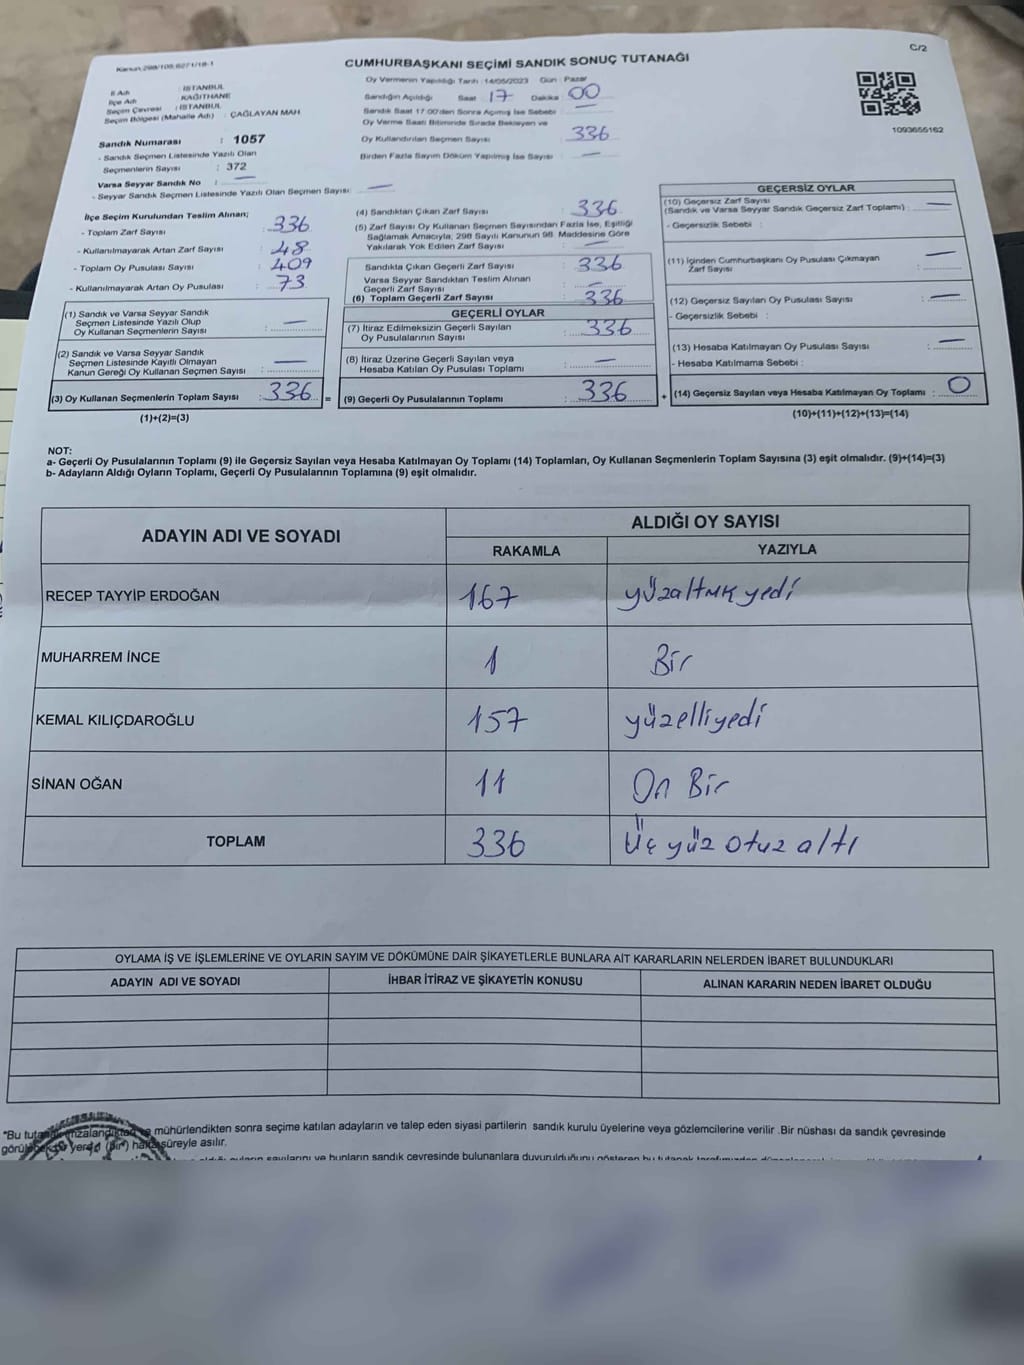 C/2
Kanun:298/109,6271/18-1
CUMHURBAŞKANI SEÇİMİ SANDIK SONUÇ TUTANAĞI
İl Adı : İSTANBUL
İlçe Adı : KAĞITHANE
Seçim Çevresi : İSTANBUL
Seçim Bölgesi (Mahalle Adı) : ÇAĞLAYAN MAH
Sandık Numarası : 1057
- Sandık Seçmen Listesinde Yazılı Olan
Seçmenlerin Sayısı : 372
Varsa Seyyar Sandık No : —
- Seyyar Sandık Seçmen Listesinde Yazılı Olan Seçmen Sayısı: —
Oy Vermenin Yapıldığı Tarih :14/05/2023 Gün : Pazar
Sandığın Açıldığı Saat 17 Dakika 00
Sandık Saat 17:00'den Sonra Açılmış İse Sebebi : —
Oy Verme Saati Bitiminde Sırada Bekleyen ve
Oy Kullandırılan Seçmen Sayısı : 336
Birden Fazla Sayım Döküm Yapılmış İse Sayısı : —
1093655162
İlçe Seçim Kurulundan Teslim Alınan;
- Toplam Zarf Sayısı : 336
- Kullanılmayarak Artan Zarf Sayısı : 48
- Toplam Oy Pusulası Sayısı : 409
- Kullanılmayarak Artan Oy Pusulası : 73
(1) Sandık ve Varsa Seyyar Sandık
Seçmen Listesinde Yazılı Olup
Oy Kullanan Seçmenlerin Sayısı : —
(2) Sandık ve Varsa Seyyar Sandık
Seçmen Listesinde Kayıtlı Olmayan
Kanun Gereği Oy Kullanan Seçmen Sayısı : —
(3) Oy Kullanan Seçmenlerin Toplam Sayısı : 336 =
(1)+(2)=(3)
(4) Sandıktan Çıkan Zarf Sayısı : 336
(5) Zarf Sayısı Oy Kullanan Seçmen Sayısından Fazla İse, Eşitliği
Sağlamak Amacıyla, 298 Sayılı Kanunun 98. Maddesine Göre
Yakılarak Yok Edilen Zarf Sayısı : —
Sandıkta Çıkan Geçerli Zarf Sayısı : 336
Varsa Seyyar Sandıktan Teslim Alınan
Geçerli Zarf Sayısı : —
(6) Toplam Geçerli Zarf Sayısı : 336
GEÇERLİ OYLAR
(7) İtiraz Edilmeksizin Geçerli Sayılan
Oy Pusulalarının Sayısı : 336
(8) İtiraz Üzerine Geçerli Sayılan veya
Hesaba Katılan Oy Pusulası Toplamı : —
(9) Geçerli Oy Pusulalarının Toplamı : 336 +
GEÇERSİZ OYLAR
(10) Geçersiz Zarf Sayısı
(Sandık ve Varsa Seyyar Sandık Geçersiz Zarf Toplamı) : —
- Geçersizlik Sebebi :
(11) İçinden Cumhurbaşkanı Oy Pusulası Çıkmayan
Zarf Sayısı : —
(12) Geçersiz Sayılan Oy Pusulası Sayısı : —
- Geçersizlik Sebebi :
(13) Hesaba Katılmayan Oy Pusulası Sayısı : —
- Hesaba Katılmama Sebebi :
(14) Geçersiz Sayılan veya Hesaba Katılmayan Oy Toplamı : 0
(10)+(11)+(12)+(13)=(14)
NOT:
a- Geçerli Oy Pusulalarının Toplamı (9) ile Geçersiz Sayılan veya Hesaba Katılmayan Oy Toplamı (14) Toplamları, Oy Kullanan Seçmenlerin Toplam Sayısına (3) eşit olmalıdır. (9)+(14)=(3)
b- Adayların Aldığı Oyların Toplamı, Geçerli Oy Pusulalarının Toplamına (9) eşit olmalıdır.
ADAYIN ADI VE SOYADI
ALDIĞI OY SAYISI
RAKAMLA YAZIYLA
RECEP TAYYİP ERDOĞAN 167 yüzaltmk yedi
MUHARREM İNCE 1 Bir
KEMAL KILIÇDAROĞLU 157 yüzelliyedi
SİNAN OĞAN 11 On Bir
TOPLAM 336 Üç yüz otuz altı
OYLAMA İŞ VE İŞLEMLERİNE VE OYLARIN SAYIM VE DÖKÜMÜNE DAİR ŞİKAYETLERLE BUNLARA AİT KARARLARIN NELERDEN İBARET BULUNDUKLARI
ADAYIN ADI VE SOYADI
İHBAR İTİRAZ VE ŞİKAYETİN KONUSU
ALINAN KARARIN NEDEN İBARET OLDUĞU
*Bu mühürlendikten sonra seçime katılan adayların ve talep eden siyasi partilerin sandık kurulu üyelerine veya gözlemcilerine verilir .Bir nüshası da sandık çevresinde
yerde (Bir) süreyle asılır.
ve bunların sandık çevresinde bulunanlara duyurulduğunu gösteren bu tutanak